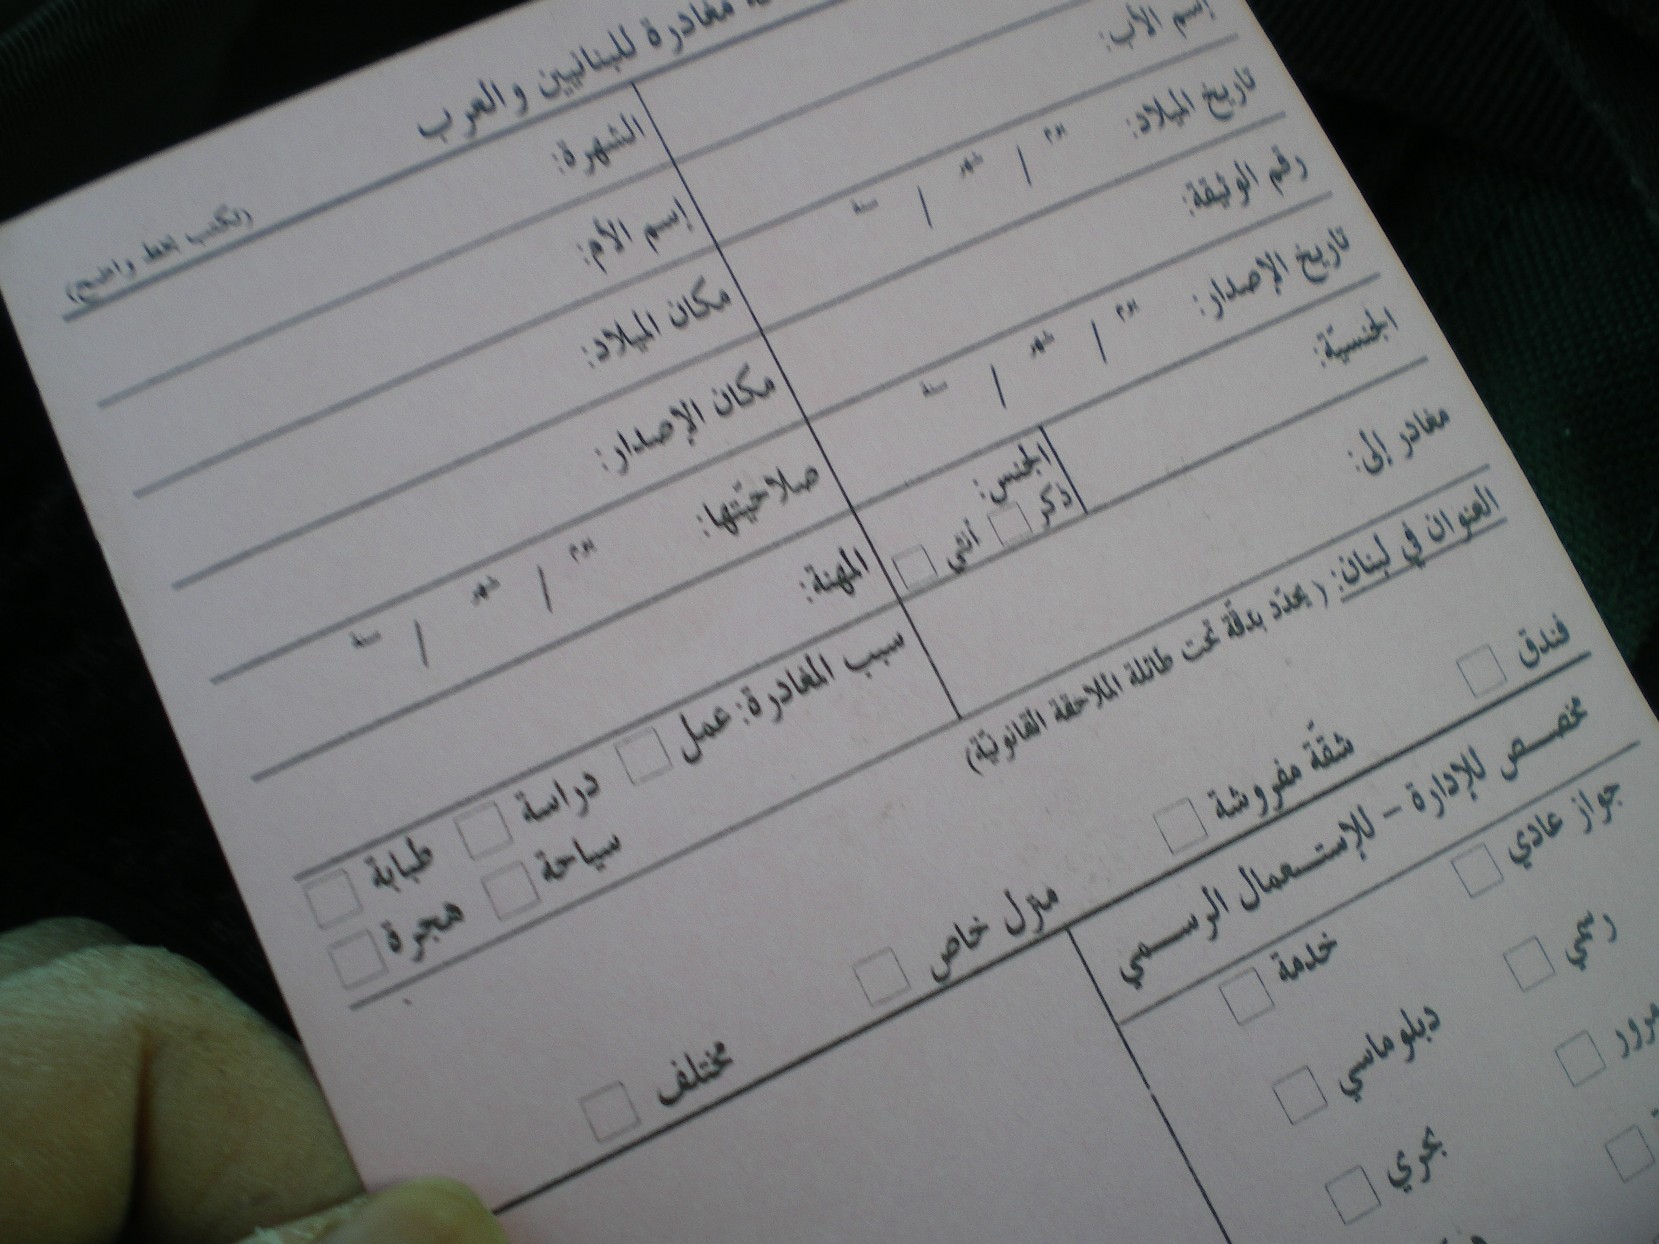 مغادرة للبنانيين والعرب
(تكتب بخط واضح)
إسم الأب:
الشهرة:
تاريخ الميلاد: يوم / شهر / سنة
إسم الأم:
رقم الوثيقة:
مكان الميلاد:
تاريخ الإصدار: يوم / شهر / سنة
مكان الإصدار:
الجنسيّة:
الجنس:
ذكر أنثى
صلاحيّتها: يوم / شهر / سنة
مغادر إلى:
المهنة:
العنوان في لبنان: (يحدّد بدقّة تحت طائلة الملاحقة القانونيّة)
سبب المغادرة: عمل دراسة طبابة
سياحة هجرة
فندق شقّة مفروشة منزل خاص مختلف
مخصص للإدارة - للإستعمال الرسمي
جواز عادي خدمة
رسمي دبلوماسي
مرور بحري